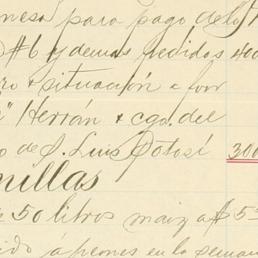 para pago de
#6 y demas pedidos 400
ro & situación a favor
" Herrán & cga. del
o de S. Luis Potosí 300
nillas
50 litros maiz a $5
ido á peones en la semana